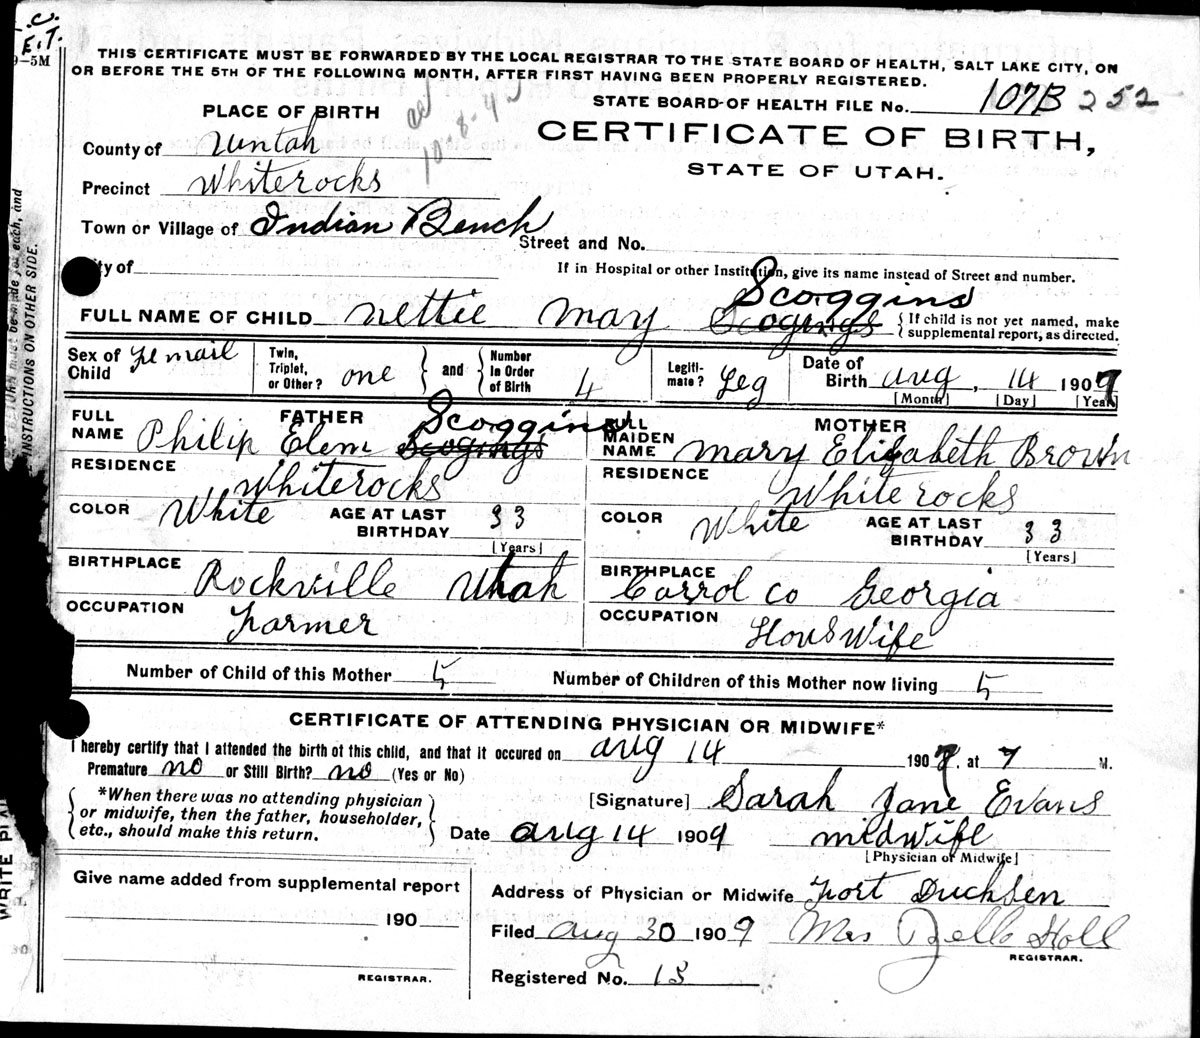 C.
E.T.
9-5M
THIS CERTIFICATE MUST BE FORWARDED BY THE LOCAL REGISTRAR TO THE STATE BOARD OF HEALTH, SALT LAKE CITY, ON
OR BEFORE THE 5TH OF THE FOLLOWING MONTH, AFTER FIRST HAVING BEEN PROPERLY REGISTERED.
STATE BOARD OF HEALTH FILE No. 107B 252
PLACE OF BIRTH
10-8-4
CERTIFICATE OF BIRTH,
STATE OF UTAH.
County of Uintah
Precinct Whiterocks
Town or Village of Indian Bench Street and No.
ity of
If in Hospital or other Institution, give its name instead of Street and number.
Scoggins
FULL NAME OF CHILD Nettie May Scogings { If child is not yet named, make
supplemental report, as directed.
Sex of Child Femail
Twin, Triplet, or Other? one } and { Number in Order of Birth 4
Legiti- mate? Yeg
Date of Birth Aug, 14 1909
[Month] [Day] [Year]
FATHER
FULL NAME Philip Elem Scogings Scoggins
MOTHER
FULL MAIDEN NAME Mary Elizabeth Brown
RESIDENCE Whiterocks
RESIDENCE Whiterocks
COLOR White AGE AT LAST BIRTHDAY 33 [Years]
COLOR White AGE AT LAST BIRTHDAY 33 [Years]
BIRTHPLACE Rockville Utah
BIRTHPLACE Carrol co Georgia
OCCUPATION Farmer
OCCUPATION HousWife
Number of Child of this Mother 5 Number of Children of this Mother now living 5
CERTIFICATE OF ATTENDING PHYSICIAN OR MIDWIFE*
I hereby certify that I attended the birth of this child, and that it occured on Aug 14 1909, at 7 M.
Premature no or Still Birth? no (Yes or No)
*When there was no attending physician
or midwife, then the father, householder,
etc., should make this return.
[Signature] Sarah Jane Evans
Date Aug 14 1909 midwife
[Physician or Midwife]
Give name added from supplemental report
190
REGISTRAR.
Address of Physician or Midwife Fort Duchsen
Filed Aug 30 1909 Mrs Zella Holl
REGISTRAR.
Registered No. 13
must be made of each, and
INSTRUCTIONS ON OTHER SIDE.
WRITE PLAI